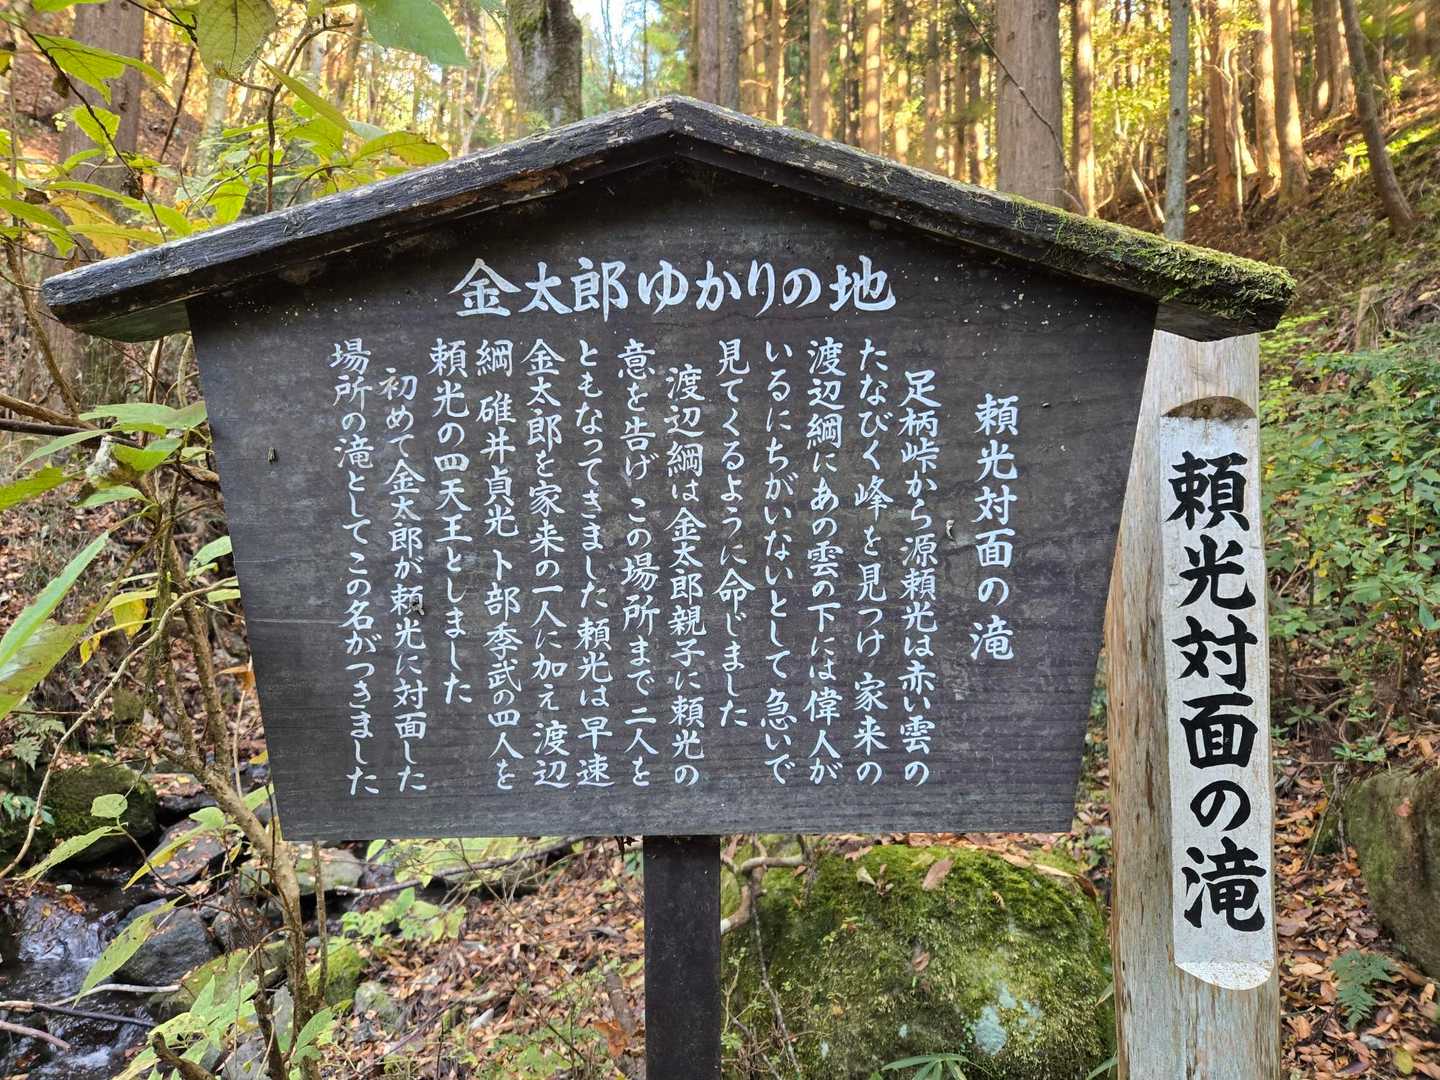 金太郎ゆかりの地
頼光対面の滝
足柄峠から源頼光は赤い雲の
たなびく峰を見つけ 家来の
渡辺綱にあの雲の下には偉人が
いるにちがいないとして 急いで
見てくるように命じました
渡辺綱は金太郎親子に頼光の
意を告げ この場所まで二人を
ともなってきました 頼光は早速
金太郎を家来の一人に加え 渡辺
綱 碓井貞光 卜部季武の四人を
頼光の四天王としました
初めて金太郎が頼光に対面した
場所の滝としてこの名がつきました
頼光対面の滝